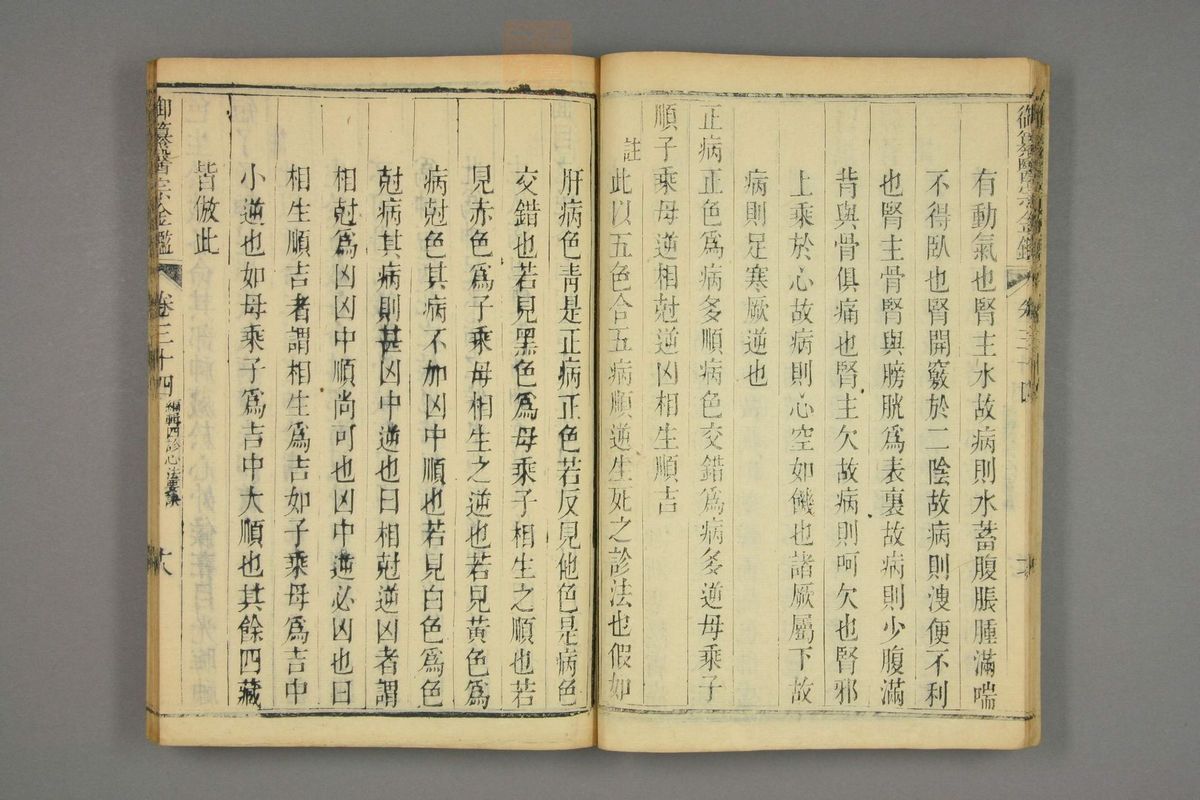 有動氣也腎主水故病則水蓄腹脹腫滿喘
不得臥也腎開竅於二陰故病則溲便不利
也腎主骨腎與膀胱爲表裏故病則少腹滿
背與骨俱痛也腎主欠故病則呵欠也腎邪
上乘於心故病則心空如饑也諸厥屬下故
病則足寒厥逆也
正病正色爲病多順病色交錯爲病多逆母乘子
順子乘母逆相尅逆凶相生順吉
註此以五色合五病順逆生死之診法也假如
肝病色靑是正病正色若反見他色是病色
交錯也若見黑色爲母乘子相生之順也若
見赤色爲子乘母相生之逆也若見黃色爲
病尅色其病不加凶中順也若見白色爲色
尅病其病則甚凶中逆也曰相尅逆凶者謂
相尅爲凶凶中順尚可也凶中逆必凶也曰
相生順吉者謂相生爲吉如子乘母爲吉中
小逆也如母乘子爲吉中大順也其餘四藏
皆倣此
御纂醫宗金鑑 卷三十四 編輯四診心法要訣 十八